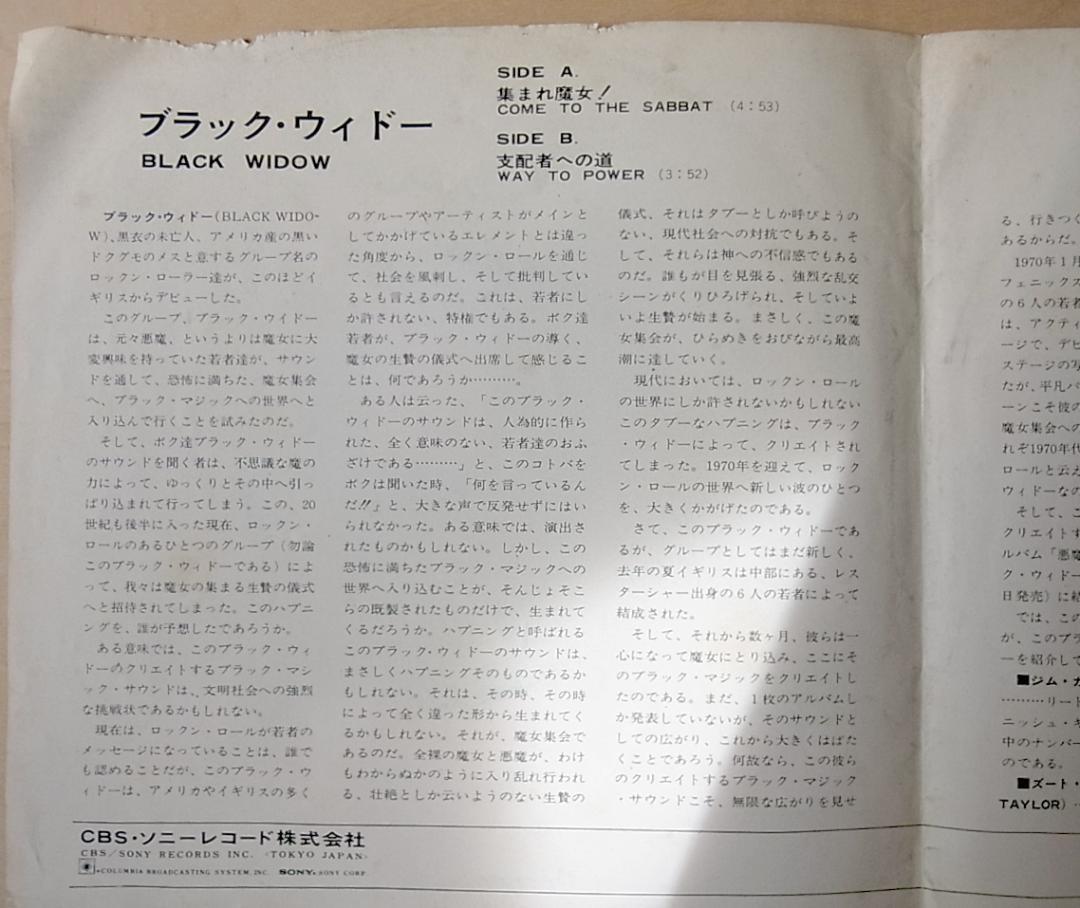 ブラック・ウィドー
BLACK WIDOW
SIDE A.
集まれ魔女!
COME TO THE SABBAT (4:53)
SIDE B.
支配者への道
WAY TO POWER (3:52)
ブラック・ウィドー(BLACK WIDO-
W)、黒衣の未亡人、アメリカ産の黒い
ドクグモのメスと意するグループ名の
ロックン・ローラー達が、このほどイ
ギリスからデビューした。
このグループ、ブラック・ウイドー
は、元々悪魔、というよりは魔女に大
変興味を持っていた若者達が、サウン
ドを通して、恐怖に満ちた、魔女集会
へ、ブラック・マジックへの世界へと
入り込んで行くことを試みたのだ。
そして、ボク達ブラック・ウィドー
のサウンドを聞く者は、不思議な魔の
力によって、ゆっくりとその中へ引っ
ぱり込まれて行ってしまう。この、20
世紀も後半に入った現在、ロックン・
ロールのあるひとつのグループ(勿論
このブラック・ウィドーである)によ
って、我々は魔女の集まる生贄の儀式
へと招待されてしまった。このハプニ
ングを、誰が予想したであろうか。
ある意味では、このブラック・ウィ
ドーのクリエイトするブラック・マジ
ック・サウンドは、文明社会への強烈
な挑戦状であるかもしれない。
現在は、ロックン・ロールが若者の
メッセージになっていることは、誰で
も認めることだが、このブラック・ウ
ィドーは、アメリカやイギリスの多く
のグループやアーティストがメインと
してかかげているエレメントとは違っ
た角度から、ロックン・ロールを通じ
て、社会を風刺し、そして批判してい
るとも言えるのだ。これは、若者にし
か許されない、特権でもある。ボク達
若者が、ブラック・ウィドーの導く、
魔女の生贄の儀式へ出席して感じるこ
とは、何であろうか………。
ある人は云った、「このブラック・
ウィドーのサウンドは、人為的に作ら
れた、全く意味のない、若者達のおふ
ざけである………」と、このコトバを
ボクは聞いた時、「何を言っているん
だ!!」と、大きな声で反発せずにはい
られなかった。ある意味では、演出さ
れたものかもしれない。しかし、この
恐怖に満ちたブラック・マジックへの
世界へ入り込むことが、そんじょそこ
らの既製されたものだけで、生まれて
くるだろうか。ハプニングと呼ばれる
このブラック・ウィドーのサウンドは、
まさしくハプニングそのものであるか
もしれない。それは、その時、その時
によって全く違った形から生まれてく
るかもしれない。それが、魔女集会で
あるのだ。全裸の魔女と悪魔が、わけ
もわからぬかのように入り乱れ行われ
る、壮絶としか云いようのない生贄の
儀式、それはタブーとしか呼びようの
ない、現代社会への対抗でもある。そ
して、それらは神への不信感でもある
のだ。誰もが目を見張る、強烈な乱交
シーンがくりひろげられ、そしていよ
いよ生贄が始まる。まさしく、この魔
女集会が、ひらめきをおびながら最高
潮に達していく。
現代においては、ロックン・ロール
の世界にしか許されないかもしれない
このタブーなハプニングは、ブラック
・ウィドーによって、クリエイトされ
てしまった。1970年を迎えて、ロック
ン・ロールの世界へ新しい波のひとつ
を、大きくかがげたのである。
さて、このブラック・ウィドーであ
るが、グループとしてはまだ新しく、
去年の夏イギリスは中部にある、レス
ターシャー出身の6人の若者によって
結成された。
そして、それから数ヶ月、彼らは一
心になって魔女にとり込み、ここにそ
のブラック・マジックをクリエイトし
たのである。まだ、1枚のアルバムし
か発表していないが、そのサウンドと
しての広がり、これから大きくはばた
くことであろう。何故なら、この彼ら
のクリエイトするブラック・マジック
・サウンドこそ、無限な広がりを見せ
る、行きつく
あるからだ。
1970年1月
フェニックス
の6人の若者
は、アクティ
ージで、デビ
ステージの写
たが、平凡パ
ーンこそ彼の
魔女集会への
れぞ1970年代
ロールと云え
ウィドーなの
そして、こ
クリエイトす
ルバム「悪魔
ク・ウィドー
日発売)に結
では、この
が、このブラ
ーを紹介して
■ジム・ガ
………リート
ニッシュ・ギ
中のナンバー
のである。
■ズート・
TAYLOR)…
CBS・ソニーレコード株式会社
CBS/SONY RECORDS INC. <TOKYO JAPAN>
COLUMBIA BROADCASTING SYSTEM, INC. SONY SONY CORP.